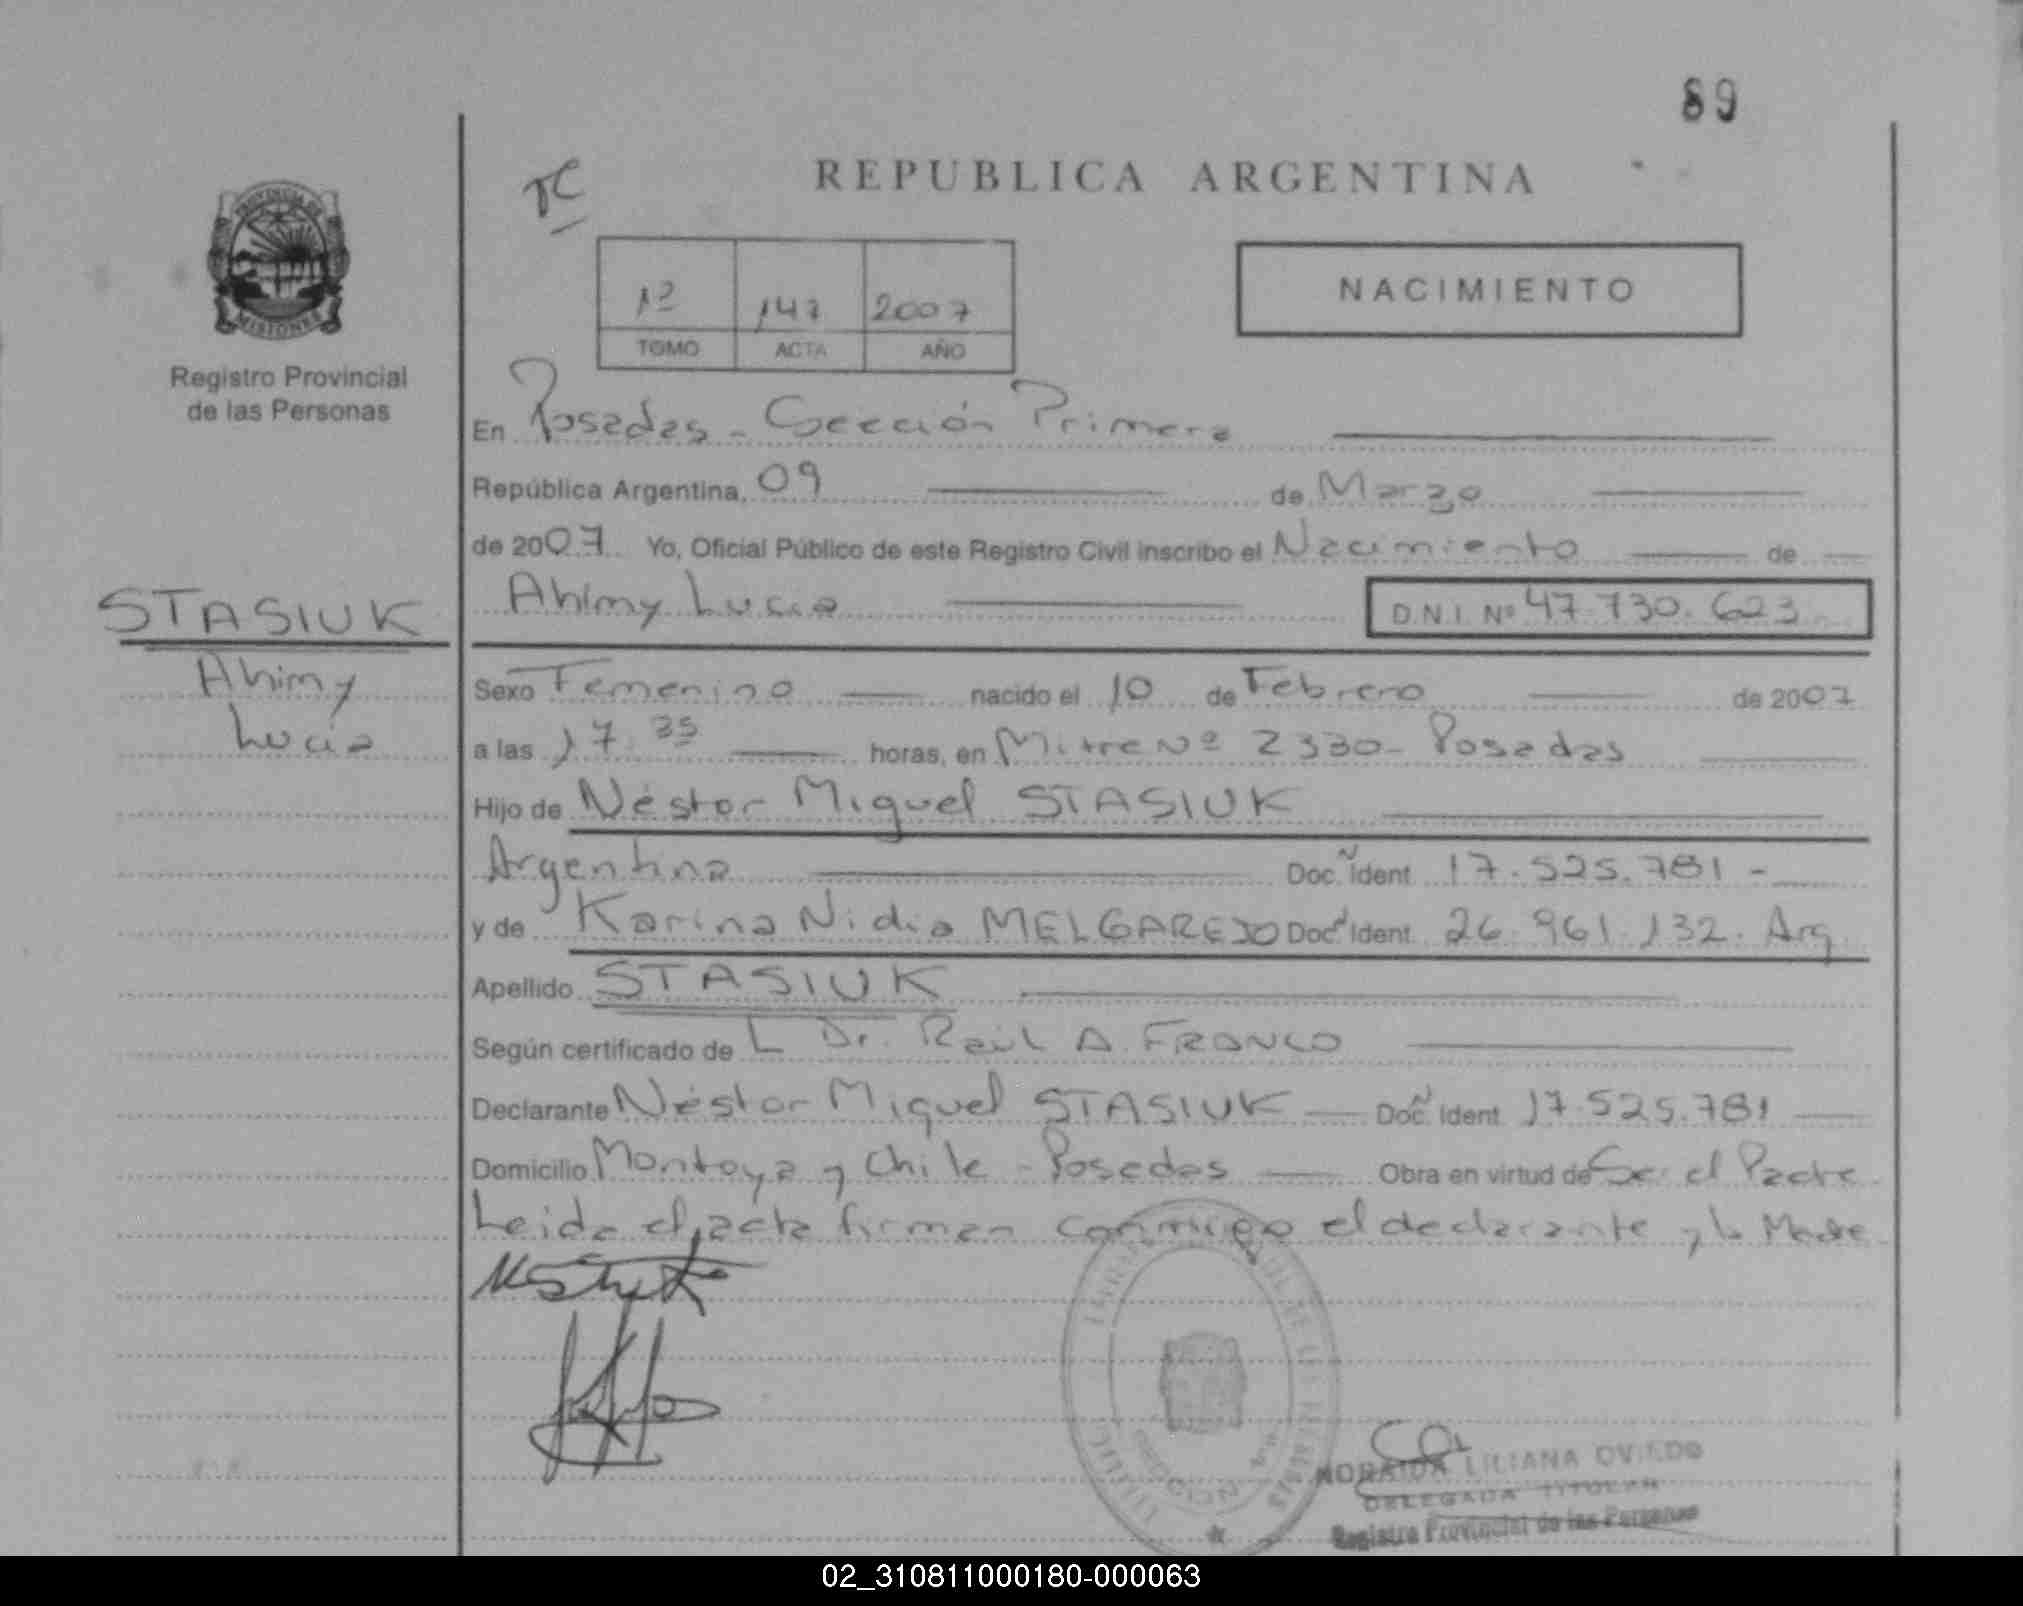 89
REPUBLICA ARGENTINA
PROVINCIA DE
MISIONES
Registro Provincial
de las Personas
1º 147 2007
TOMO ACTA AÑO
NACIMIENTO
En Posadas - Sección Primera
República Argentina, 09 de Marzo
de 2007 Yo, Oficial Público de este Registro Civil inscribo el Nacimiento de
STASIUK
Ahimy Lucia
Ahimy Lucia D.N.I. Nº 47.730.623
Sexo Femenino nacido el 10 de Febrero de 2007
a las 17.35 horas, en Mitre Nº 2330 - Posadas
Hijo de Néstor Miguel STASIUK
Argentina Doc. N Ident. 17.525.781 -
y de Karina Nidia MELGAREJO Doc. N Ident. 26.961.132. Arg.
Apellido STASIUK
Según certificado de L Dr. Raúl A. FRANCO
Declarante Néstor Miguel STASIUK Doc. N Ident. 17.525.781
Domicilio Montoya y Chile - Posadas Obra en virtud de Ser el Padre
Leida el acta firman conmigo el declarante y la Madre
NORAIDA LILIANA OVIEDO
DELEGADA TITULAR
Registro Provincial de las Personas
02_310811000180-000063